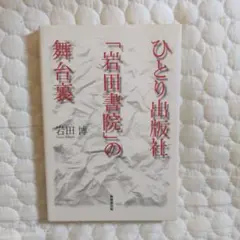 ひとり出版社
「岩田書院」の
舞台裏
岩田 博